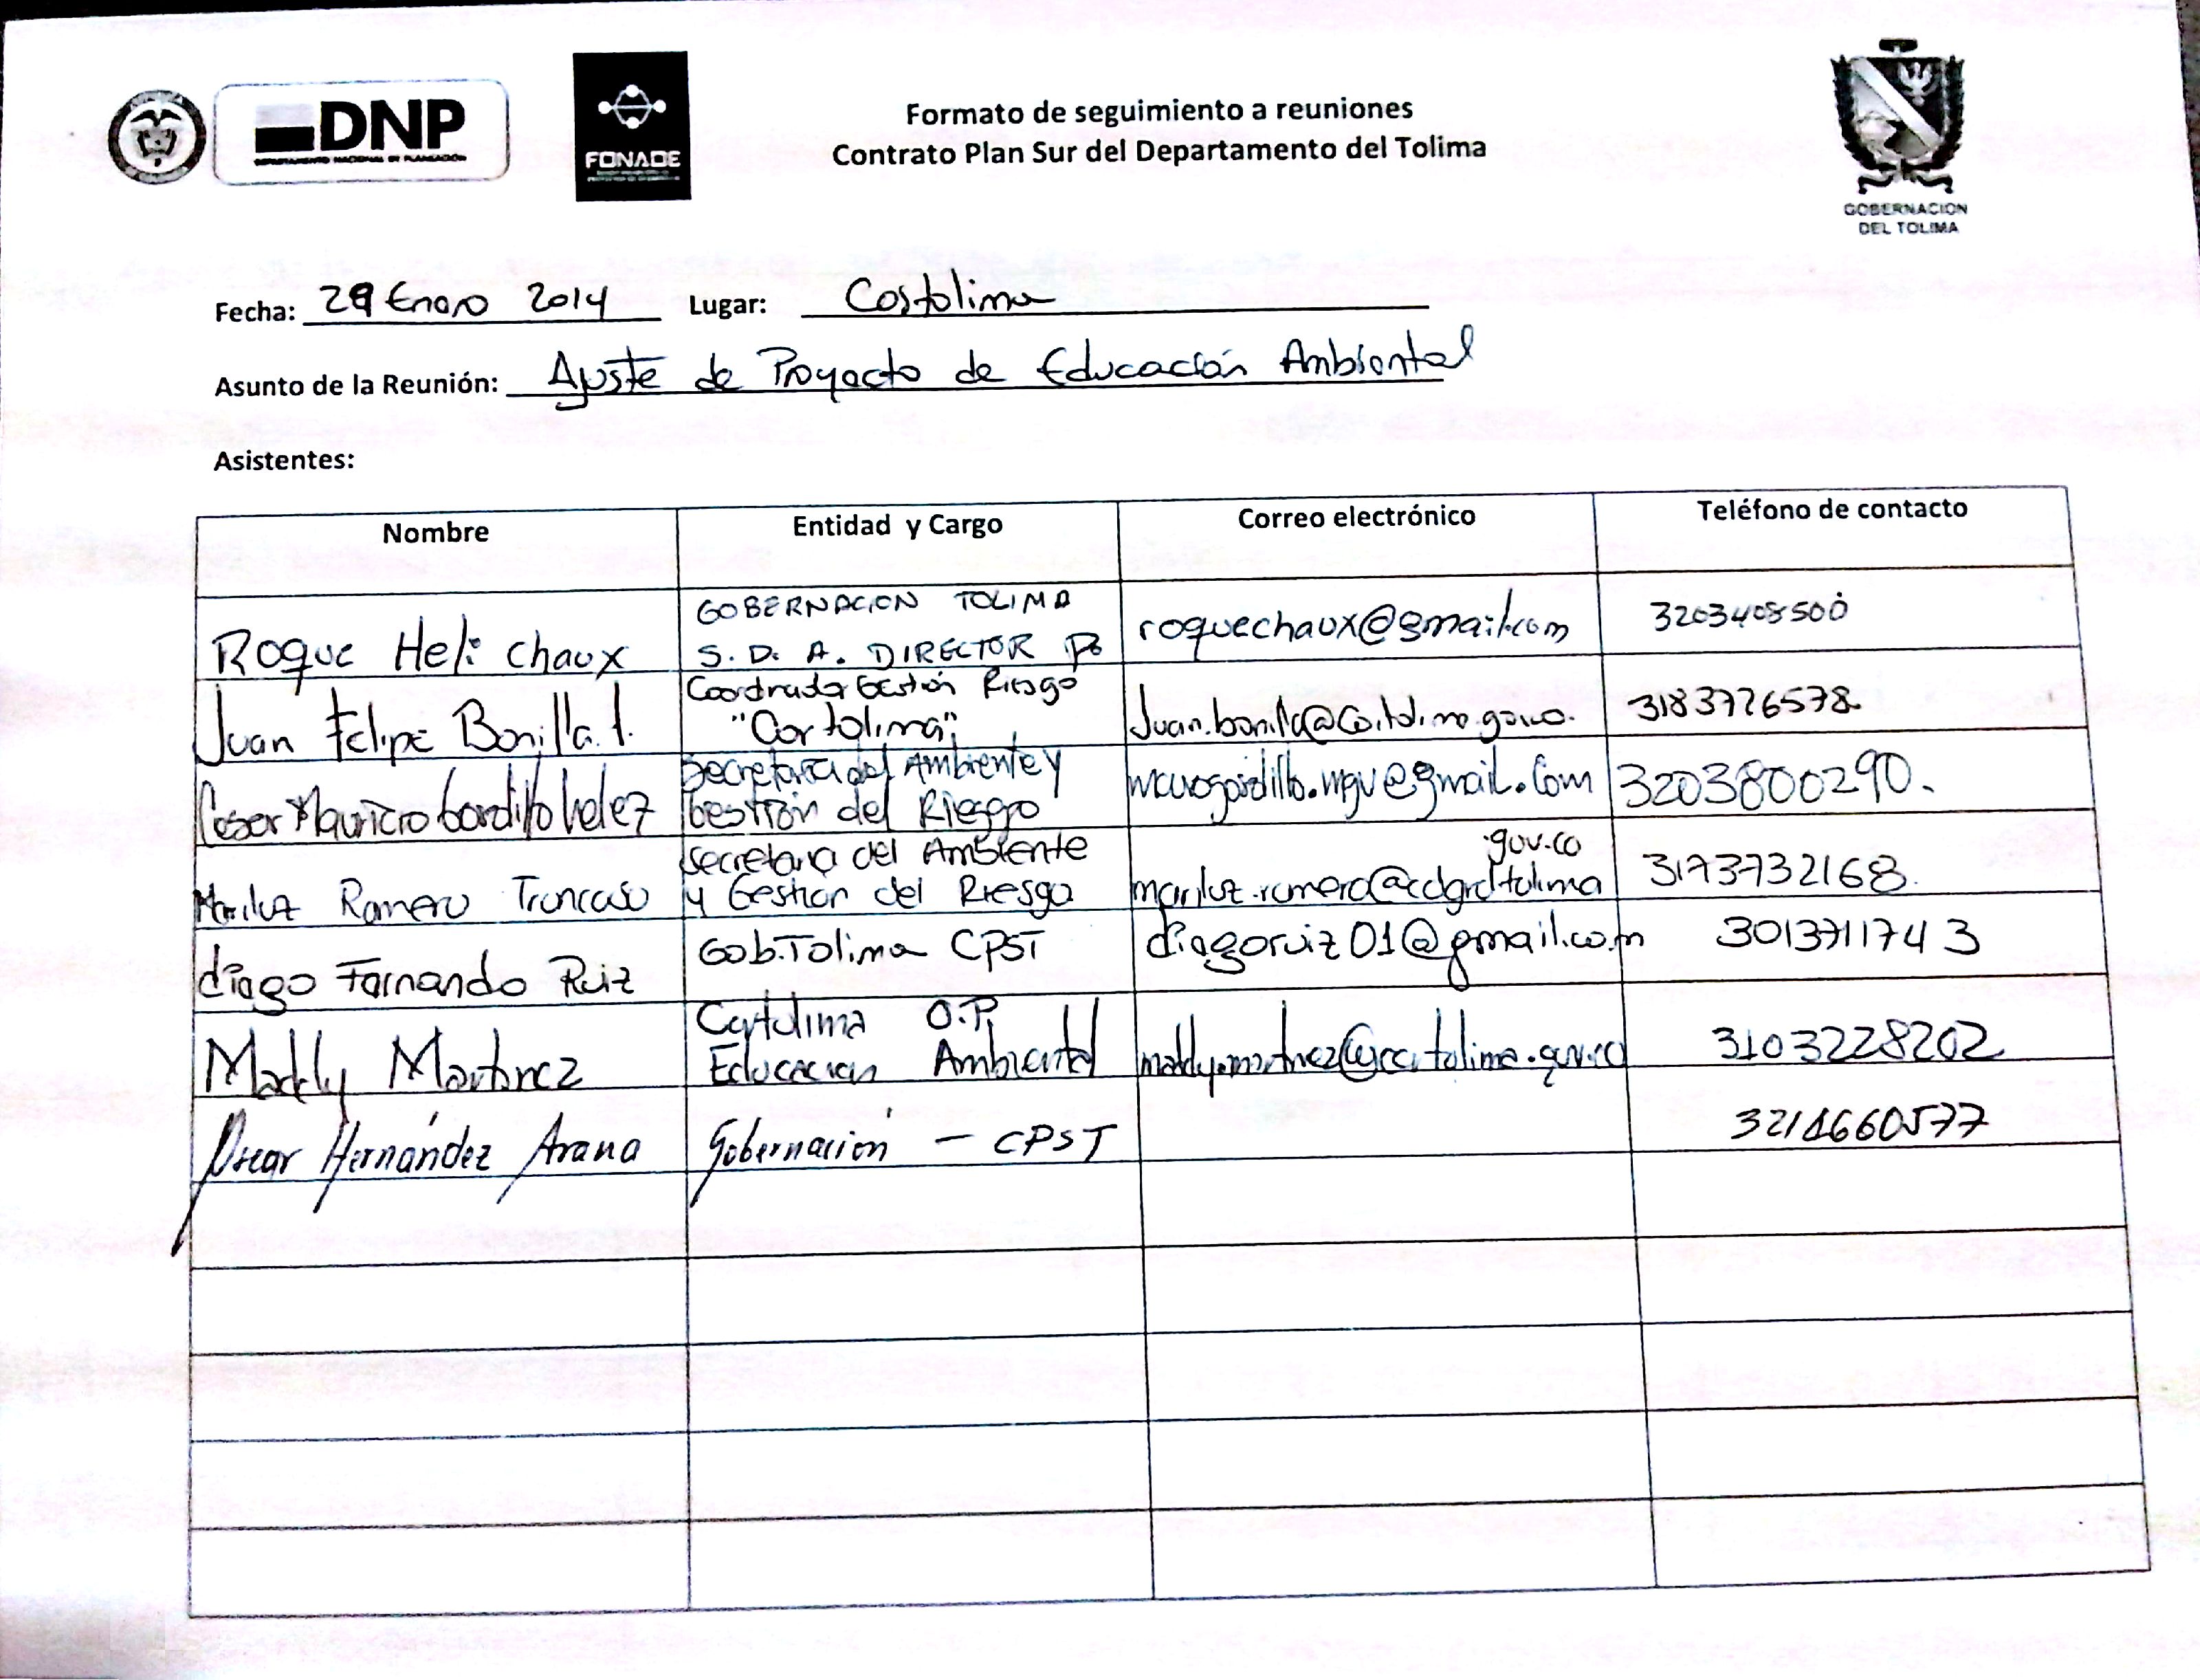 DNP
DEPARTAMENTO NACIONAL DE PLANEACIÓN
FONADE
Formato de seguimiento a reuniones
Contrato Plan Sur del Departamento del Tolima
GOBERNACION
DEL TOLIMA
Fecha: 29 Enero 2014 Lugar: Cortolima
Asunto de la Reunión: Ajuste de Proyecto de Educación Ambiental
Asistentes:
Nombre Entidad y Cargo Correo electrónico Teléfono de contacto
GOBERNACION TOLIMA
Roque Heli Chaux S. D. A. DIRECTOR roquechaux@gmail.com 3203408500
Coordinador Gestión Riesgo
Juan Felipe Bonilla "Cortolima" 3183726578
Secretaria del Ambiente y
Cesar Mauricio Gordillo Velez Gestión del Riesgo 3203800290.
Secretaria del Ambiente .gov.co
Mariluz Romero Troncoso y Gestion del Riesgo mariluz.romero@cdgrdtolima 3173732168
diego Fernando Ruiz Gob.Tolima CPST diegoruiz01@gmail.com 3013711743
Cortolima O.P.
Maddy Martinez Educacion Ambiental 3103228202
Oscar Hernández Arana Gobernación - CPST 3214660577